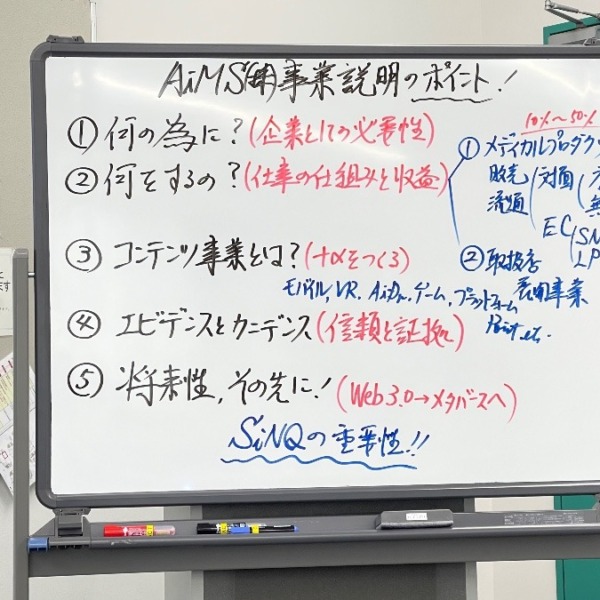 AiMS(株)事業説明のポイント!
① 何の為に?(企業としての必要性)
② 何をするの?(仕事の仕組みと収益)
③ コンテンツ事業とは?(+αをつくる)
モバイル, VR, ゲーム, プラットフォーム
④ エビデンスとカニデンス(信頼と証拠)
⑤ 将来性, その先に!(Web 3.0→メタバースへ)
SiNQの重要性!!
10%〜50%
① メディカルプロダクツ
販売 対面
流通
EC SN
LP
② 取扱店
展開事業